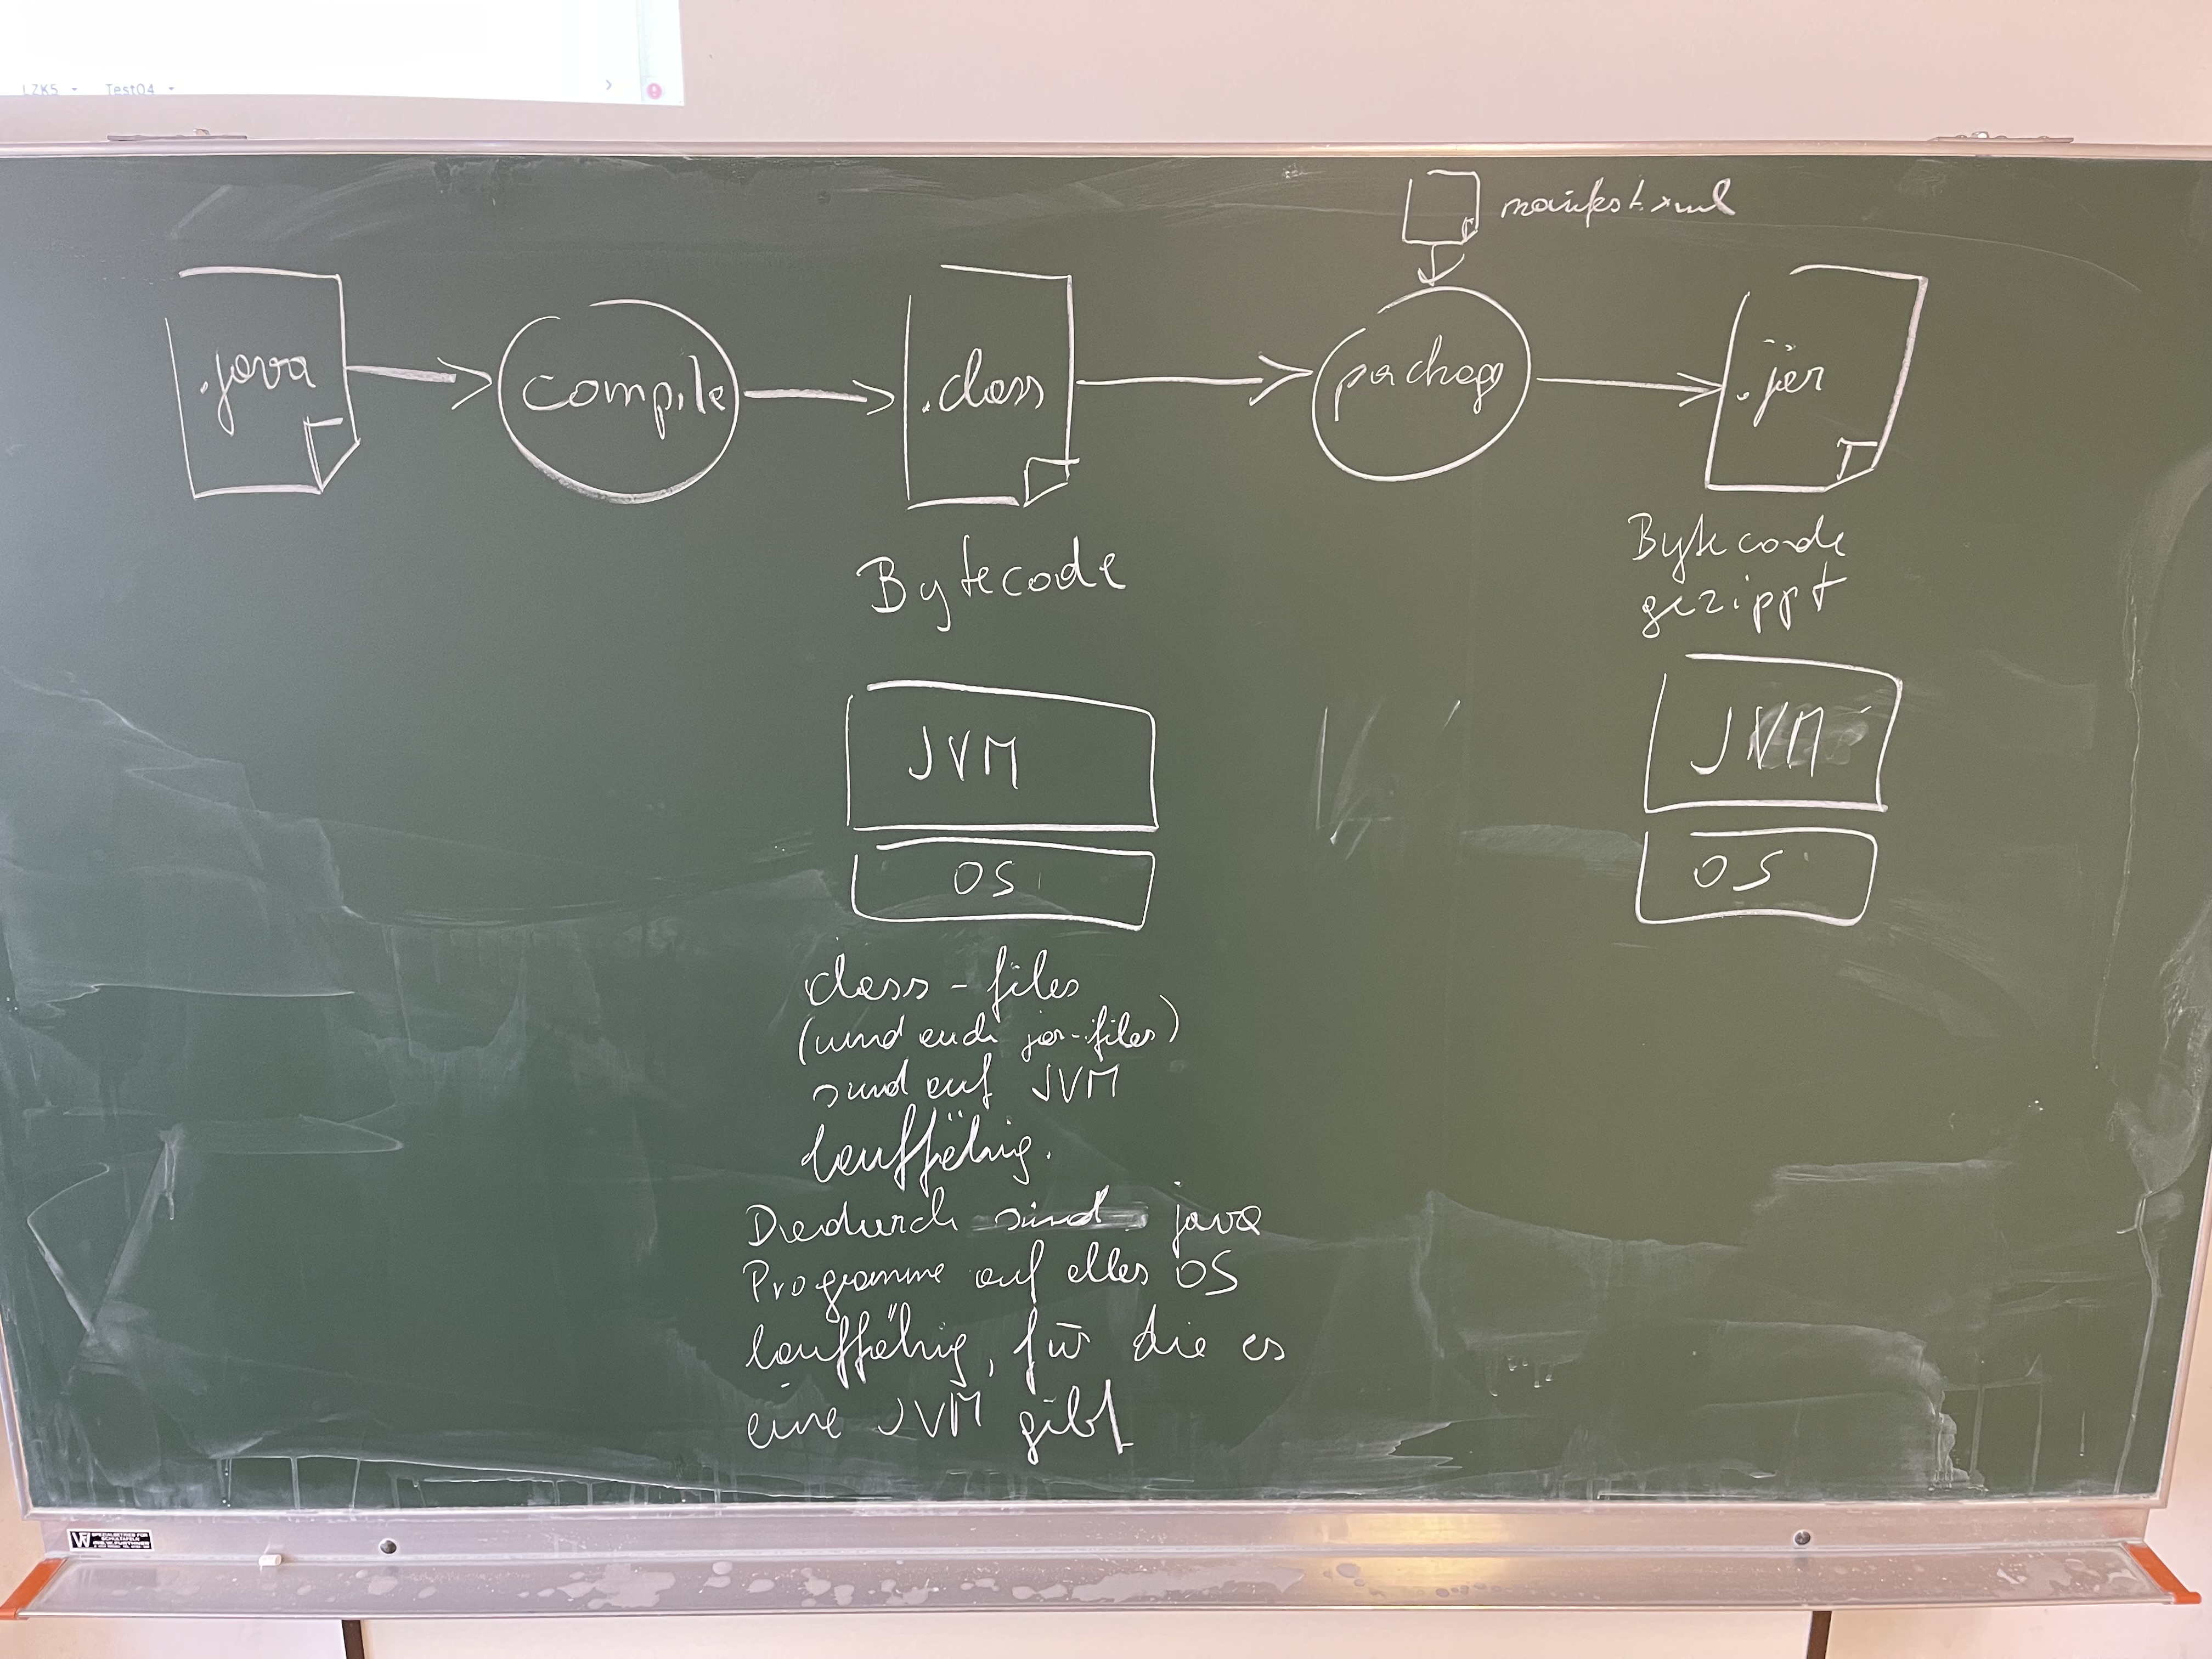 LZK5 Test04
manifest.xml
.java
compile
.class
package
.jar
Bytecode
Bytecode
gezippt
JVM
OS
JVM
OS
class-files
(und auch jar-files)
sind auf JVM
lauffähig.
Dadurch sind java
Programme auf alles OS
lauffähig, für die es
eine JVM gibt